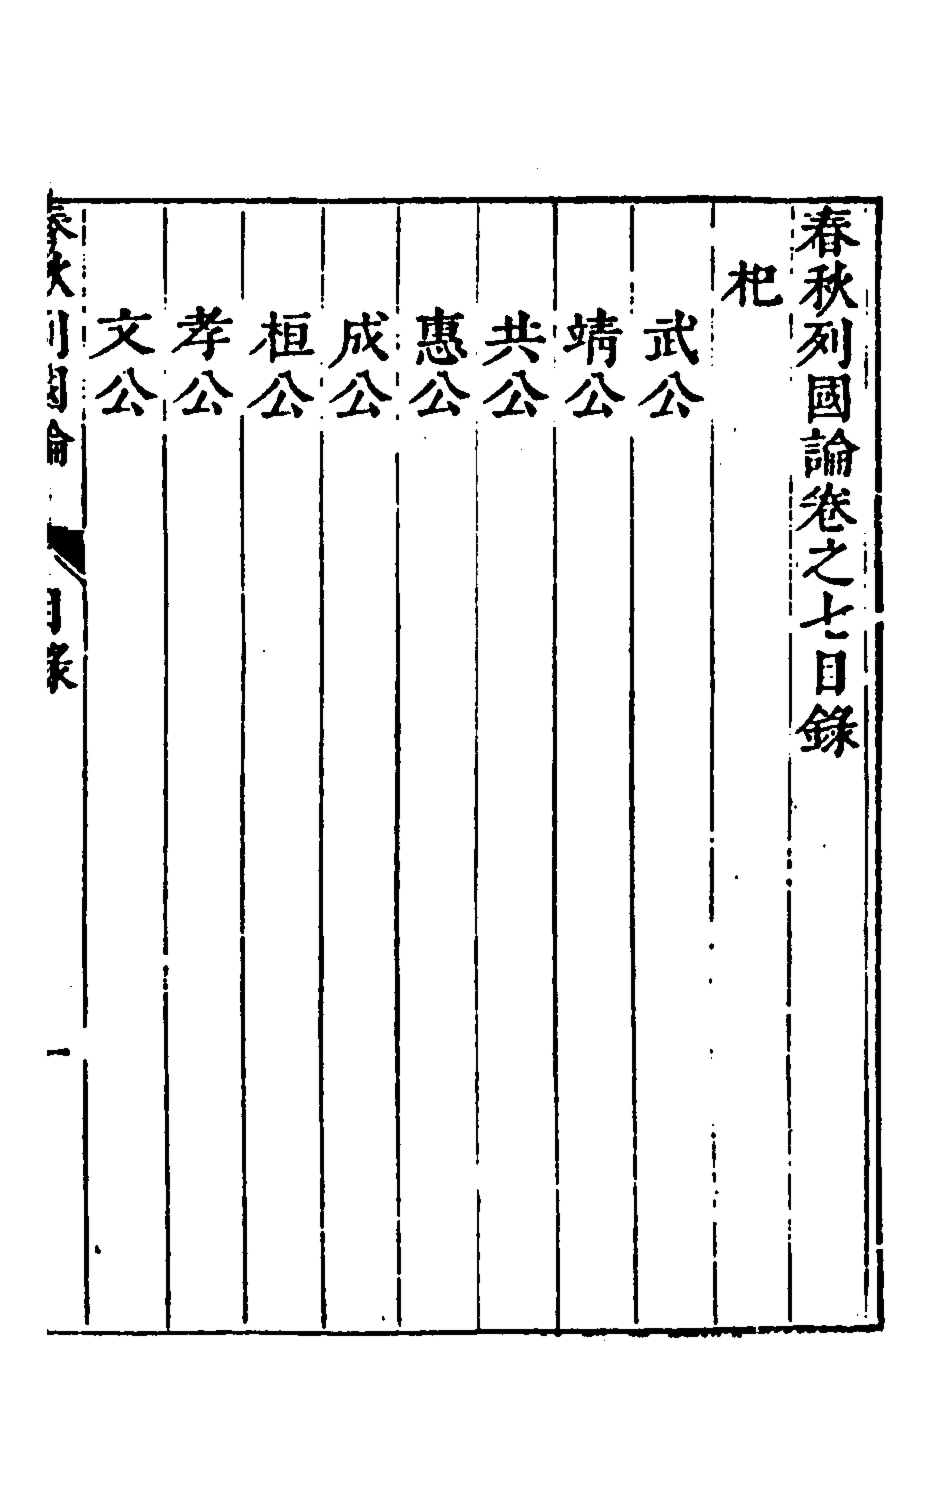 春秋列國論卷之七目錄
杞
武公
靖公
共公
惠公
成公
桓公
孝公
文公
春秋列國論 目錄 一